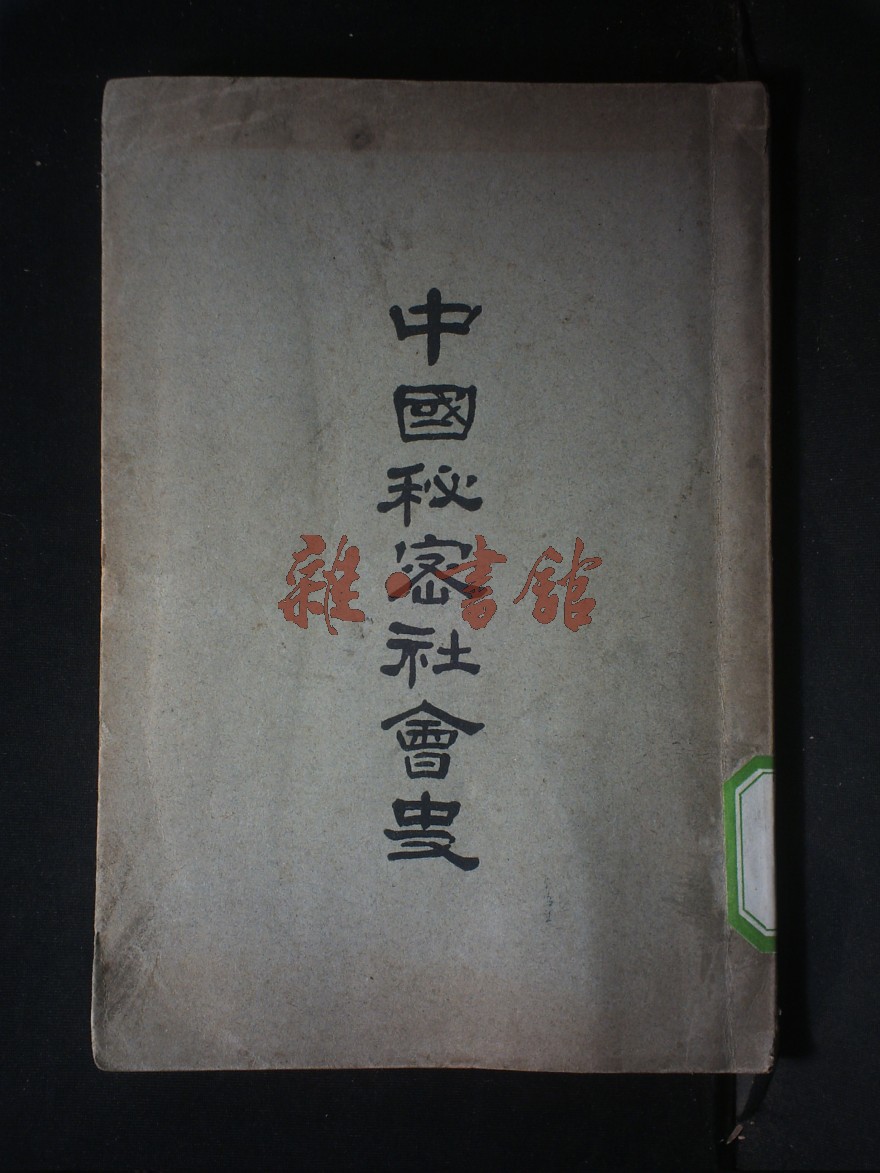 中國秘密社會史
雜·書館